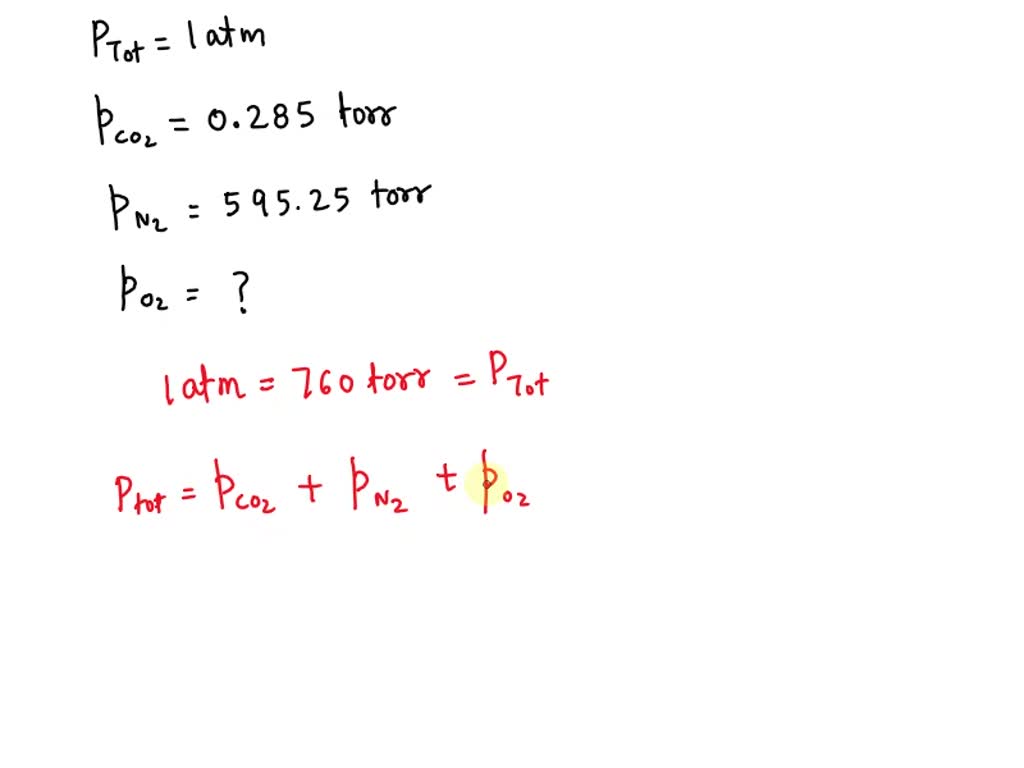 P_Tot = 1 atm
p_CO2 = 0.285 torr
p_N2 = 595.25 torr
p_O2 = ?
1 atm = 760 torr = P_Tot
P_tot = p_CO2 + p_N2 + p_O2